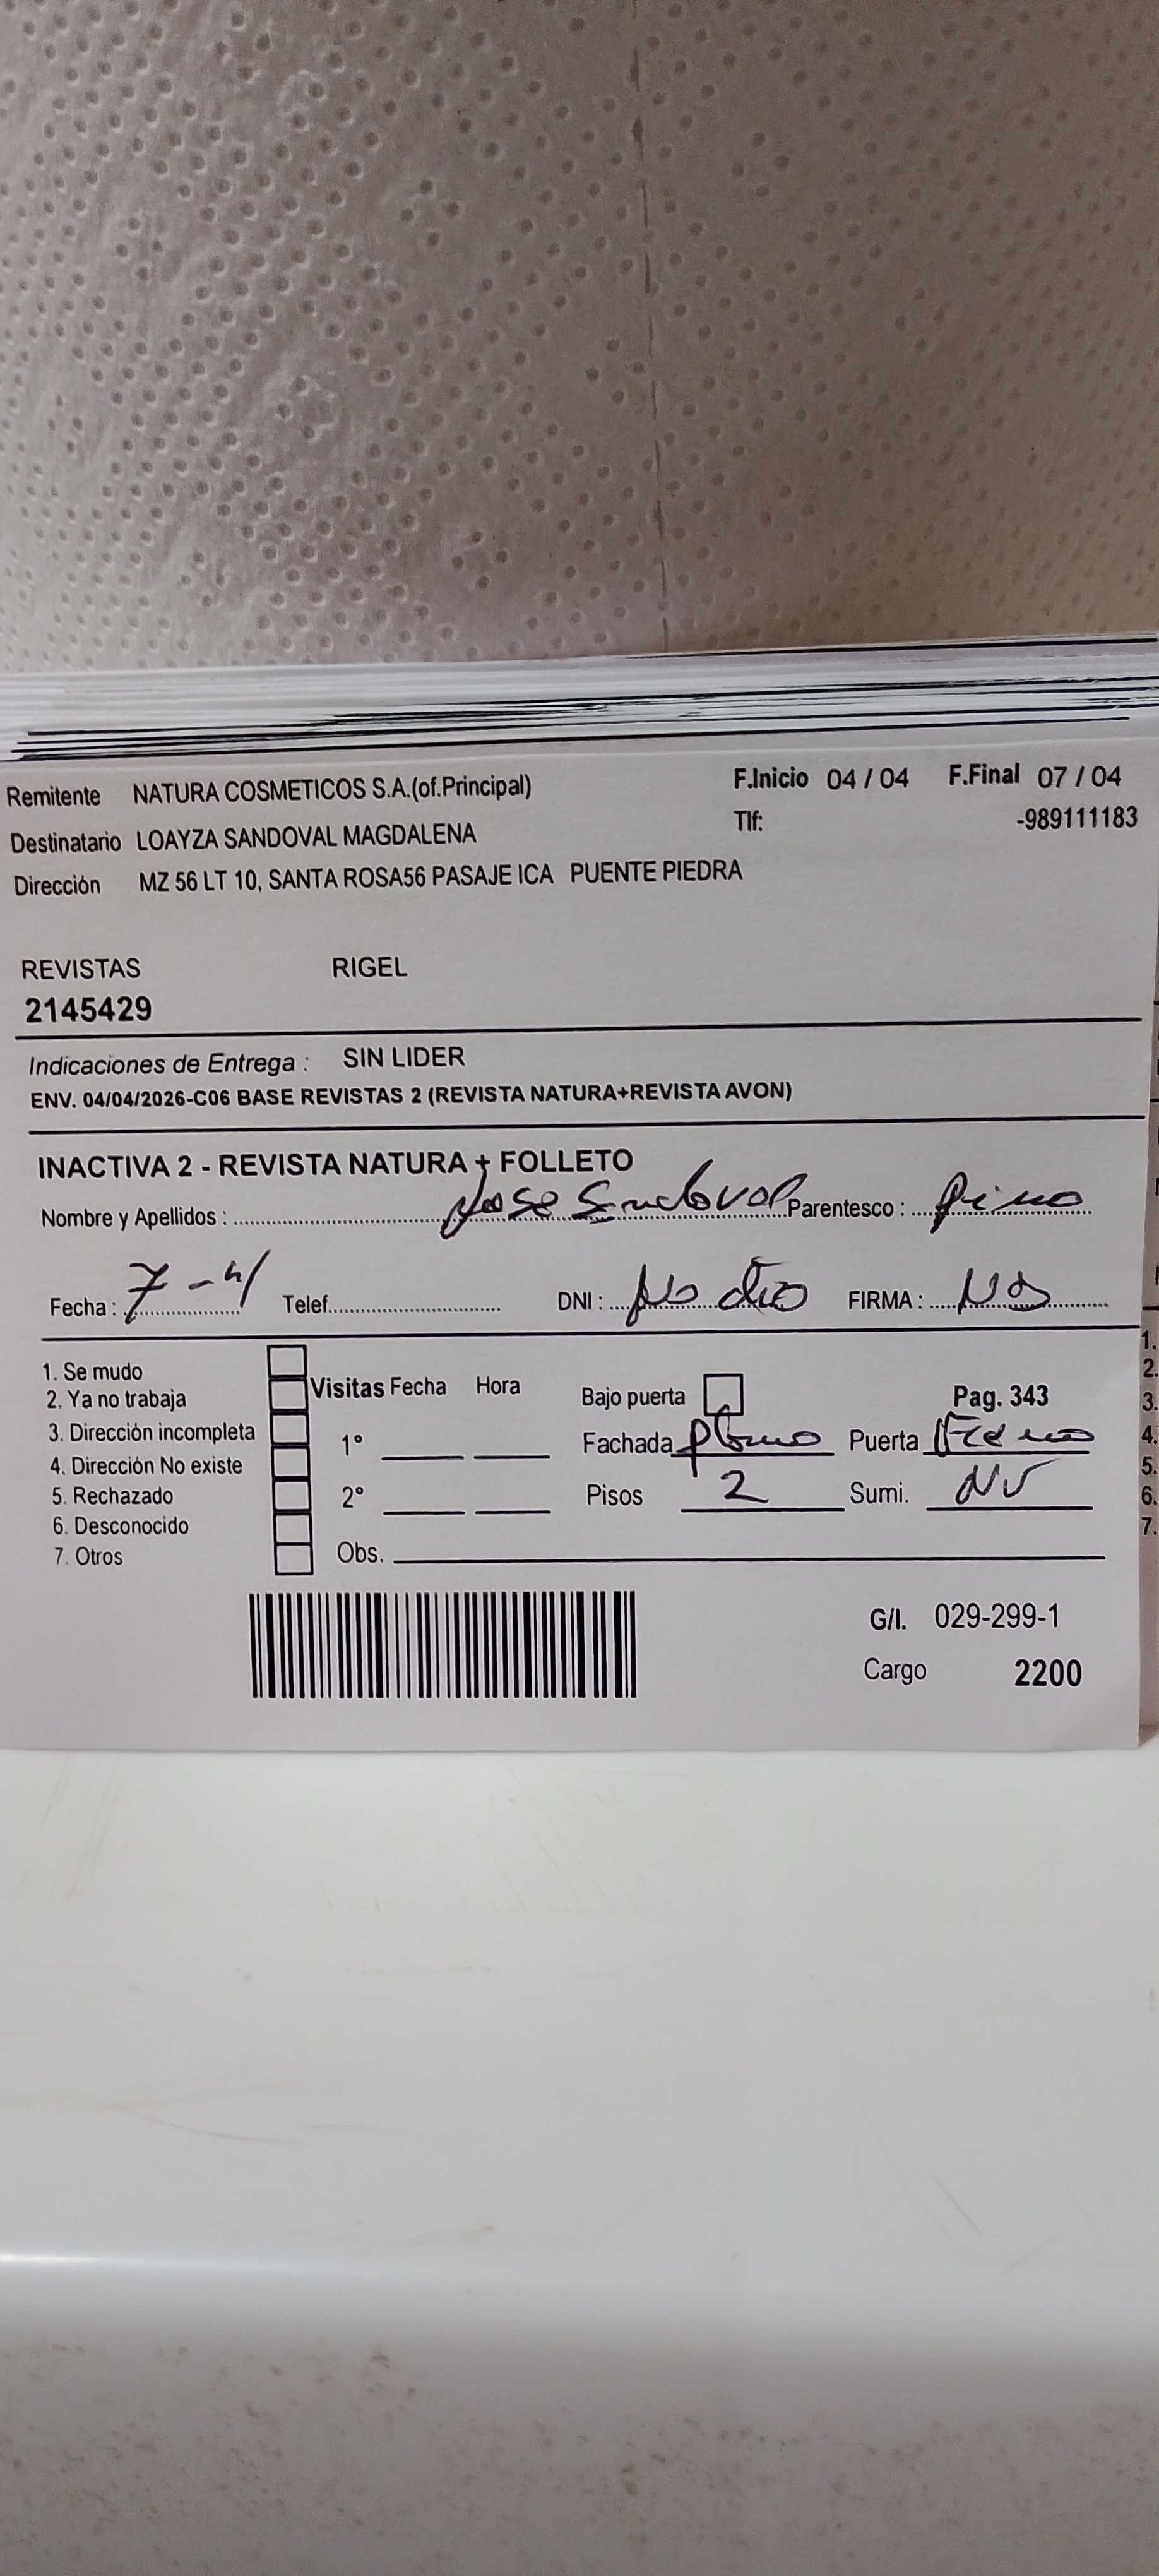 Remitente NATURA COSMETICOS S.A.(of.Principal) F.Inicio 04 / 04 F.Final 07 / 04
Destinatario LOAYZA SANDOVAL MAGDALENA Tlf: -989111183
Dirección MZ 56 LT 10, SANTA ROSA56 PASAJE ICA PUENTE PIEDRA
REVISTAS RIGEL
2145429
Indicaciones de Entrega : SIN LIDER
ENV. 04/04/2026-C06 BASE REVISTAS 2 (REVISTA NATURA+REVISTA AVON)
INACTIVA 2 - REVISTA NATURA + FOLLETO
Nombre y Apellidos : Jose Sandoval Parentesco :
Fecha : 7-4 Telef. DNI : No dio FIRMA : No
1. Se mudo
2. Ya no trabaja Visitas Fecha Hora Bajo puerta Pag. 343
3. Dirección incompleta 1° Fachada plomo Puerta
4. Dirección No existe
5. Rechazado 2° Pisos 2 Sumi. NV
6. Desconocido
7. Otros Obs.
G/I. 029-299-1
Cargo 2200
1.
2.
3.
4.
5.
6.
7.